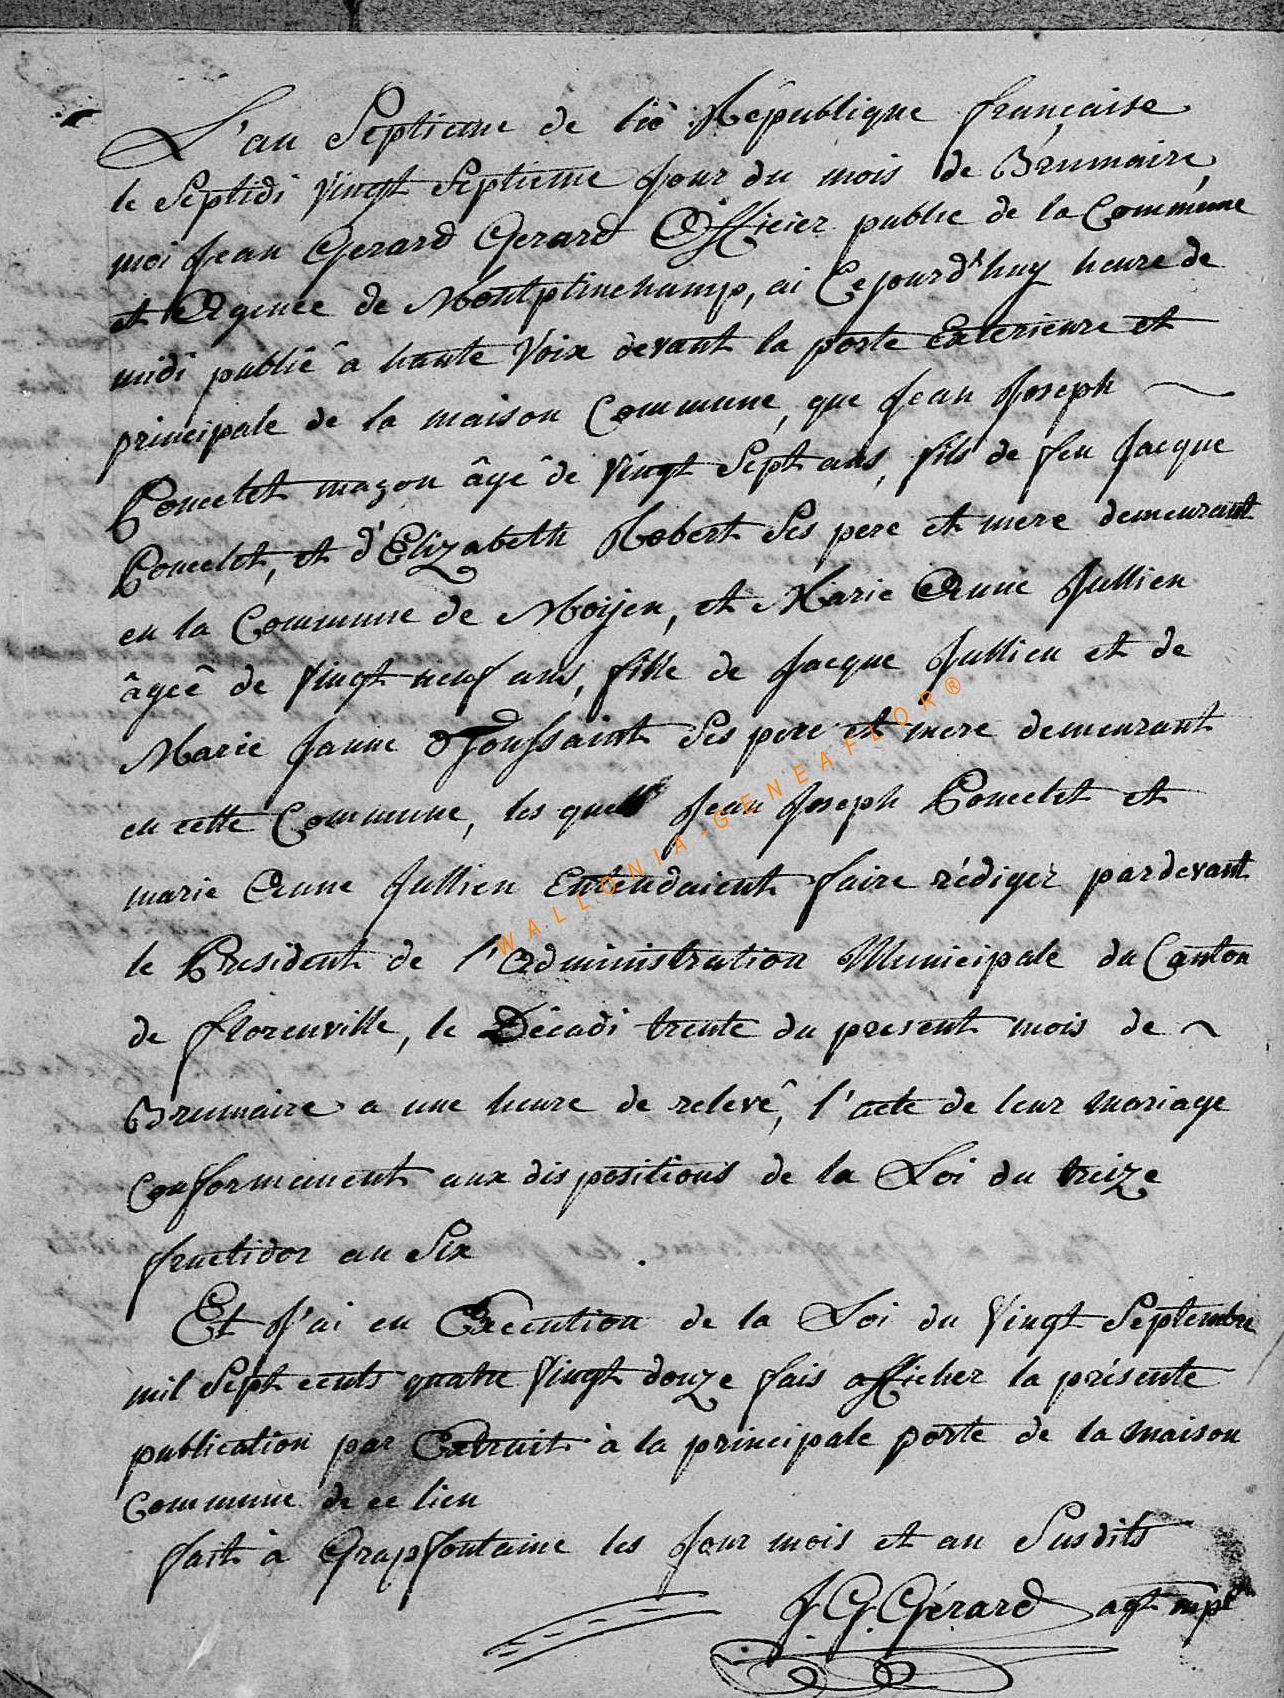 L'an Septieme de la République française
le Septidi Vingt Septieme Jour du mois de Brumaire,
moi Jean Gerard Gerard Officier public de la Commune
et Agence de Montplinchamp, ai Cejourd'huy heure de
midi publié à haute Voix devant la porte Exterieure et
principale de la maison Commune, que Jean Joseph
Poncelet maçon âgé de Vingt Sept ans, fils de feu Jacque
Poncelet, et d'Elizabeth Robert Ses pere et mere demeurant
en la Commune de Moijen, et Marie Anne Jullien
âgée de Vingt neuf ans, fille de Jacque Jullien et de
Marie Janne Toussaint Ses pere et mere demeurant
en cette Commune, les quels Jean Joseph Poncelet et
marie Anne Jullien Entendaient faire rédiger pardevant
le President de l'Administration Municipale du Canton
de florenville, le Décadi trente du present mois de
Brumaire a une heure de relevé, l'acte de leur mariage
Conformement aux dispositions de la Loi du treize
fructidor an Six
Et J'ai en Execution de la Loi du Vingt Septembre
mil Sept cents quatre Vingt douze fais afficher la présente
publication par Extrait à la principale porte de la maison
Commune de ce lieu
fait à Grapfontaine les Jour mois et an Susdits
J. G. Gérard agt mpl
WALLONIA-GENEAFLOR®